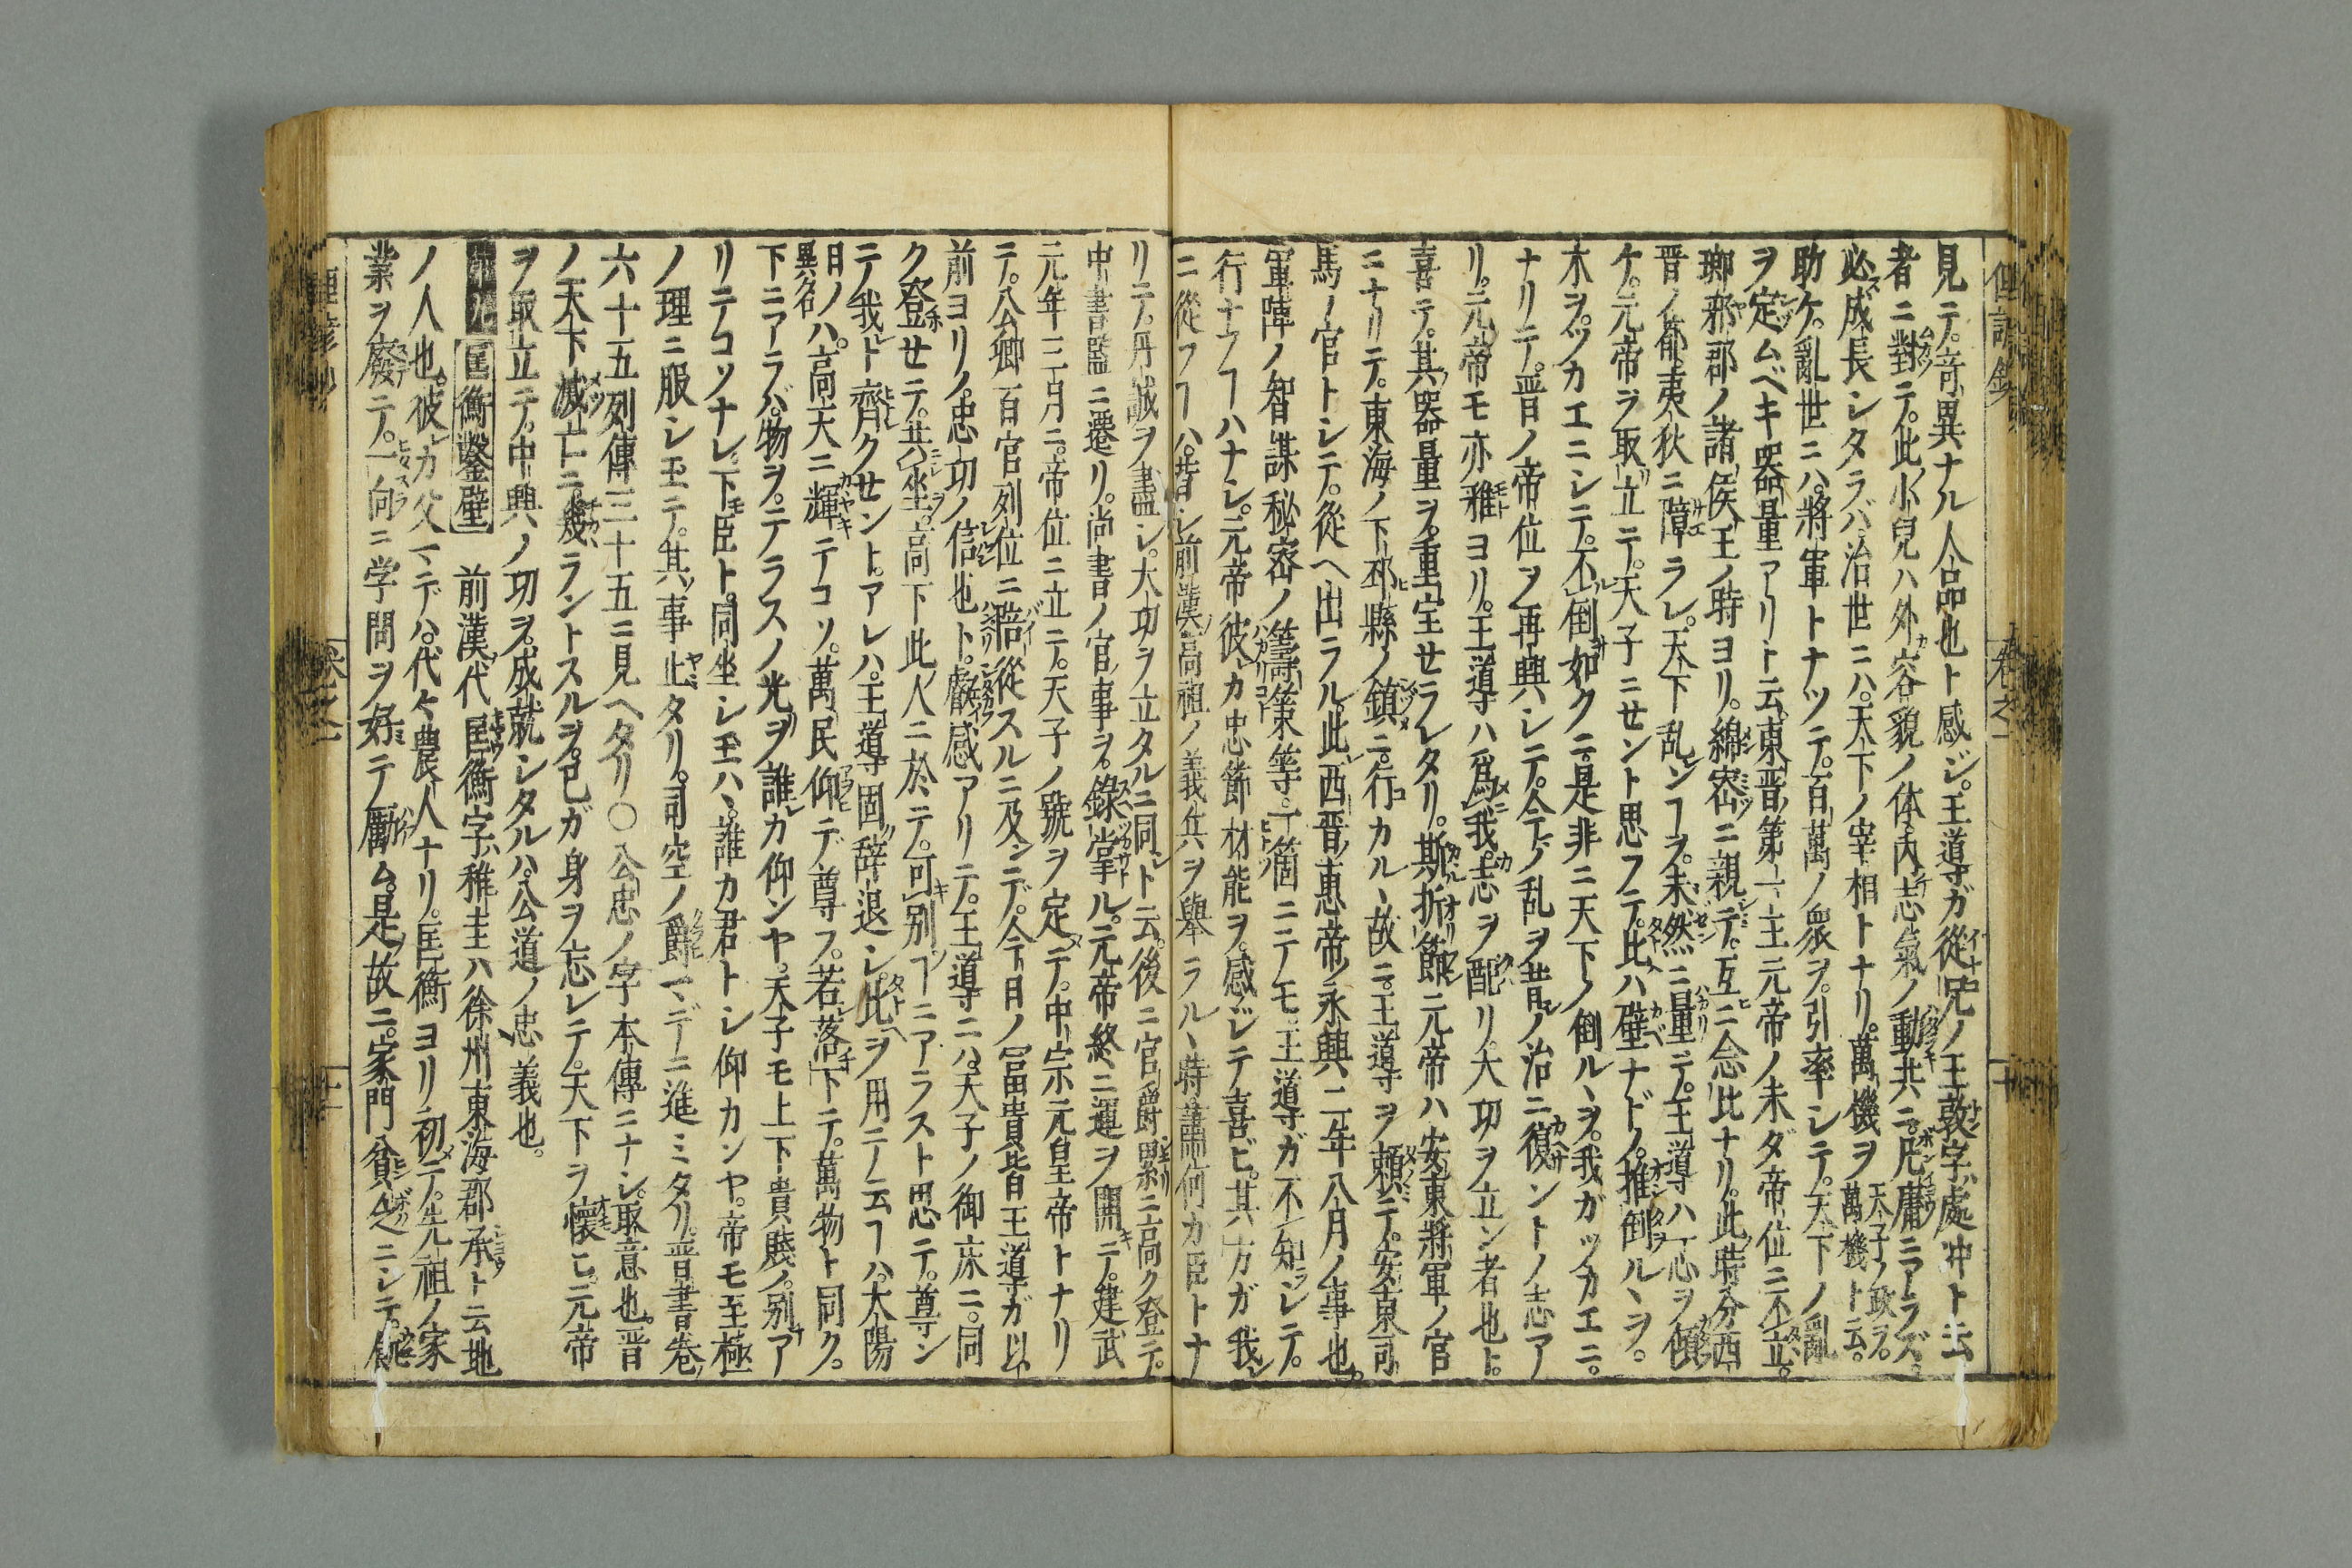 見テ。奇異ナル人品也ト感ジ。王導ガ從兄ノ王敦字處冲ト云
者ニ對テ。此小兒ハ外容貌ノ体内志氣ノ動共ニ。凡庸ニアラズ。
必成長シタラバ。治世ニハ。天下ノ宰相トナリ。萬機ヲ天子ノ政ヲ。萬機ト云。
助ケ。亂世ニハ。將軍トナツテ。百萬ノ衆ヲ。引率シテ。天下ノ亂
ヲ定ムベキ器量アリト云。東晋第一主元帝ノ未ダ帝位ニ不立。
瑯邪郡ノ諸侯王ノ時ヨリ。綿密ニ親テ。互ニ念比ナリ。此時分西
晋ノ都夷狄ニ障ラレ。天下乱ンヿヲ。未然ニ量テ。王導ハ一心ヲ傾
ケ。元帝ヲ取立テ。天子ニセント思フテ。此ハ壁ナドノ。推倒ルヽヲ。
木ヲ。ツカエニシテ。不倒如クニ。是非ニ天下ノ倒ルヽヲ。我ガツカエニ。
ナリテ。晋ノ帝位ヲ再興シテ。今ノ乱ヲ昔ノ治ニ復ントノ志ア
リ。元帝モ亦雅ヨリ。王導ハ為我。志ヲ配リ。大功ヲ立ン者也ト。
喜テ。其器量ヲ。重宝セラレタリ。斯折節元帝ハ安東將軍ノ官
ニナリテ。東海ノ下邳縣ノ鎮ニ。行カルヽ故ニ。王導ヲ頼テ。安東司
馬ノ官トシテ。從ヘ出ラル。此西晋惠帝ノ永興二年八月ノ事也。
軍陣ノ智謀秘密ノ籌策等。一箇ニテモ。王導ガ不知シテ。
行ナフヿハナシ。元帝彼カ忠節材能ヲ。感ジテ喜ビ。其方ガ我
ニ從フヿハ。昔シ前漢高祖ノ義兵ヲ舉ラルヽ時。蕭何カ臣トナ
リテ。丹誠ヲ盡シ。大功ヲ立タルニ同シト云。後ニ官爵累ニ高ク登テ。
中書監ニ遷リ。尚書ノ官事ヲ。錄掌ル。元帝終ニ運ヲ開テ。建武
元年三月ニ。帝位ニ立テ。天子ノ號ヲ定テ。中宗元皇帝トナリ
テ。公卿百官列位ニ陪從スルニ及ンデ。今日ノ冨貴皆王導ガ以
前ヨリノ。忠切ノ信也ト。叡感アリテ。王導ニハ。天子ノ御床ニ。同
ク登セテ。共坐。高下此人ニ於テ。可別ヿニアラスト思テ。尊ン
テ我ト齊クセント。アレハ。王導固辞退シ。此ヲ用テ云フハ。太陽
日ノ異名ハ。高天ニ輝テコソ。萬民仰デ尊フ。若落下テ。萬物ト同ク。
下ニアラバ。物ヲ。テラスノ光ヲ誰カ仰ンヤ。天子モ上下貴賤ノ別ア
リテコソナレ。下臣ト。同坐シ玉ハヽ。誰カ君トシ仰カンヤ。帝モ至極
ノ理ニ服シ玉テ。其事止タリ。司空ノ爵マデニ進ミタリ。晋書卷
六十五列傳三十五ニ見ヘタリ○公忠ノ字本傳ニナシ。取意也。晋
ノ天下滅亡ニ幾ラントスルヲ。己ガ身ヲ忘レテ。天下ヲ懷ヒ元帝
ヲ取立テ。中興ノ功ヲ。成就シタルハ。公道ノ忠義也。
匡衡鑿壁 前漢代匡衡字稚圭ハ徐州東海郡承ト云地
ノ人也。彼カ父マデハ。代々農人ナリ。匡衡ヨリ初テ。先祖ノ家
業ヲ廢テ。一向ニ学問ヲ好テ勵ム。是故ニ。家門貧乏ニシテ。
卷之一